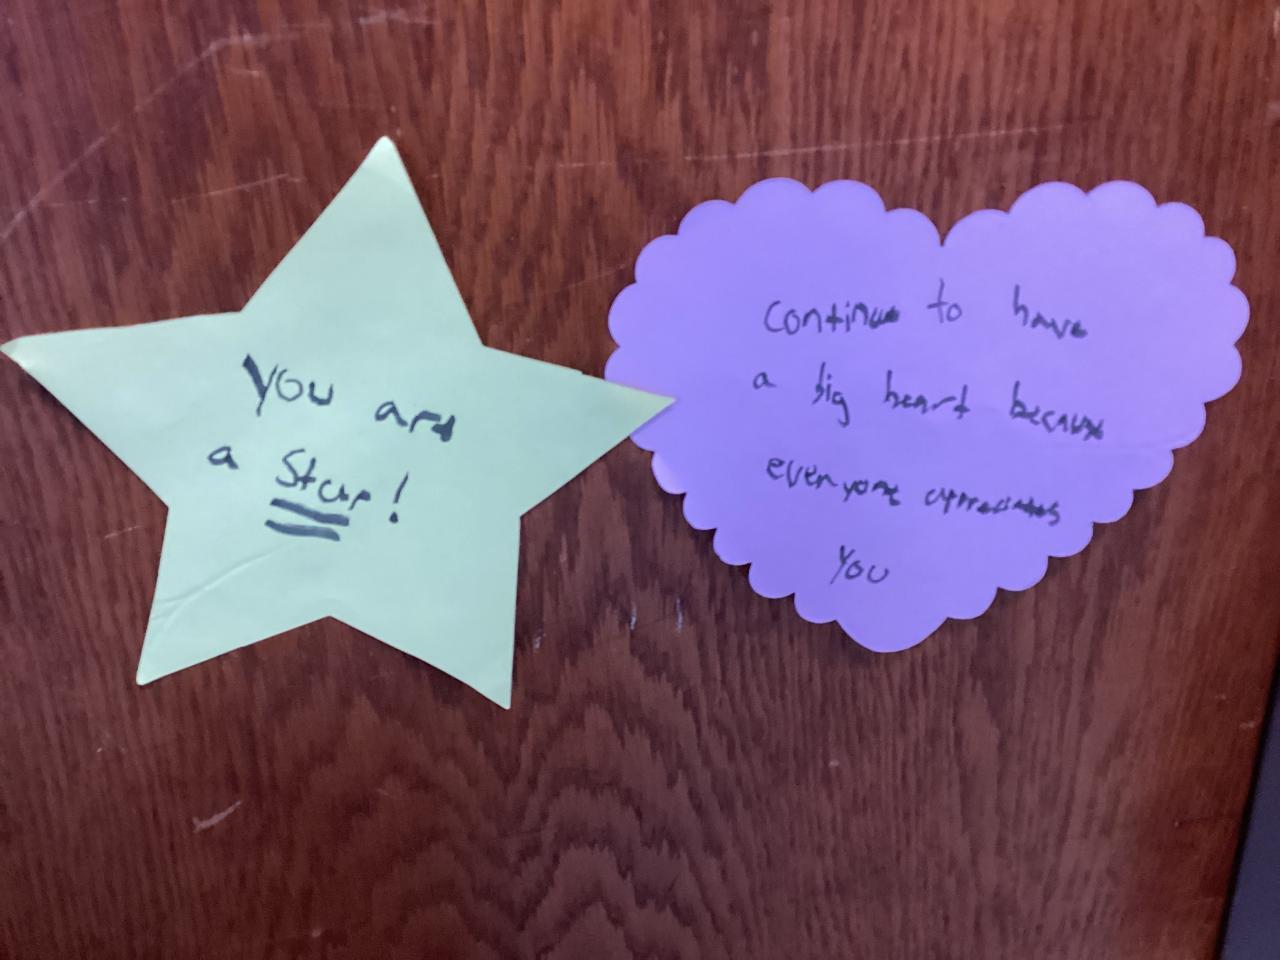 You are
a Star!
Continue to have
a big heart because
everyone appreciates
You